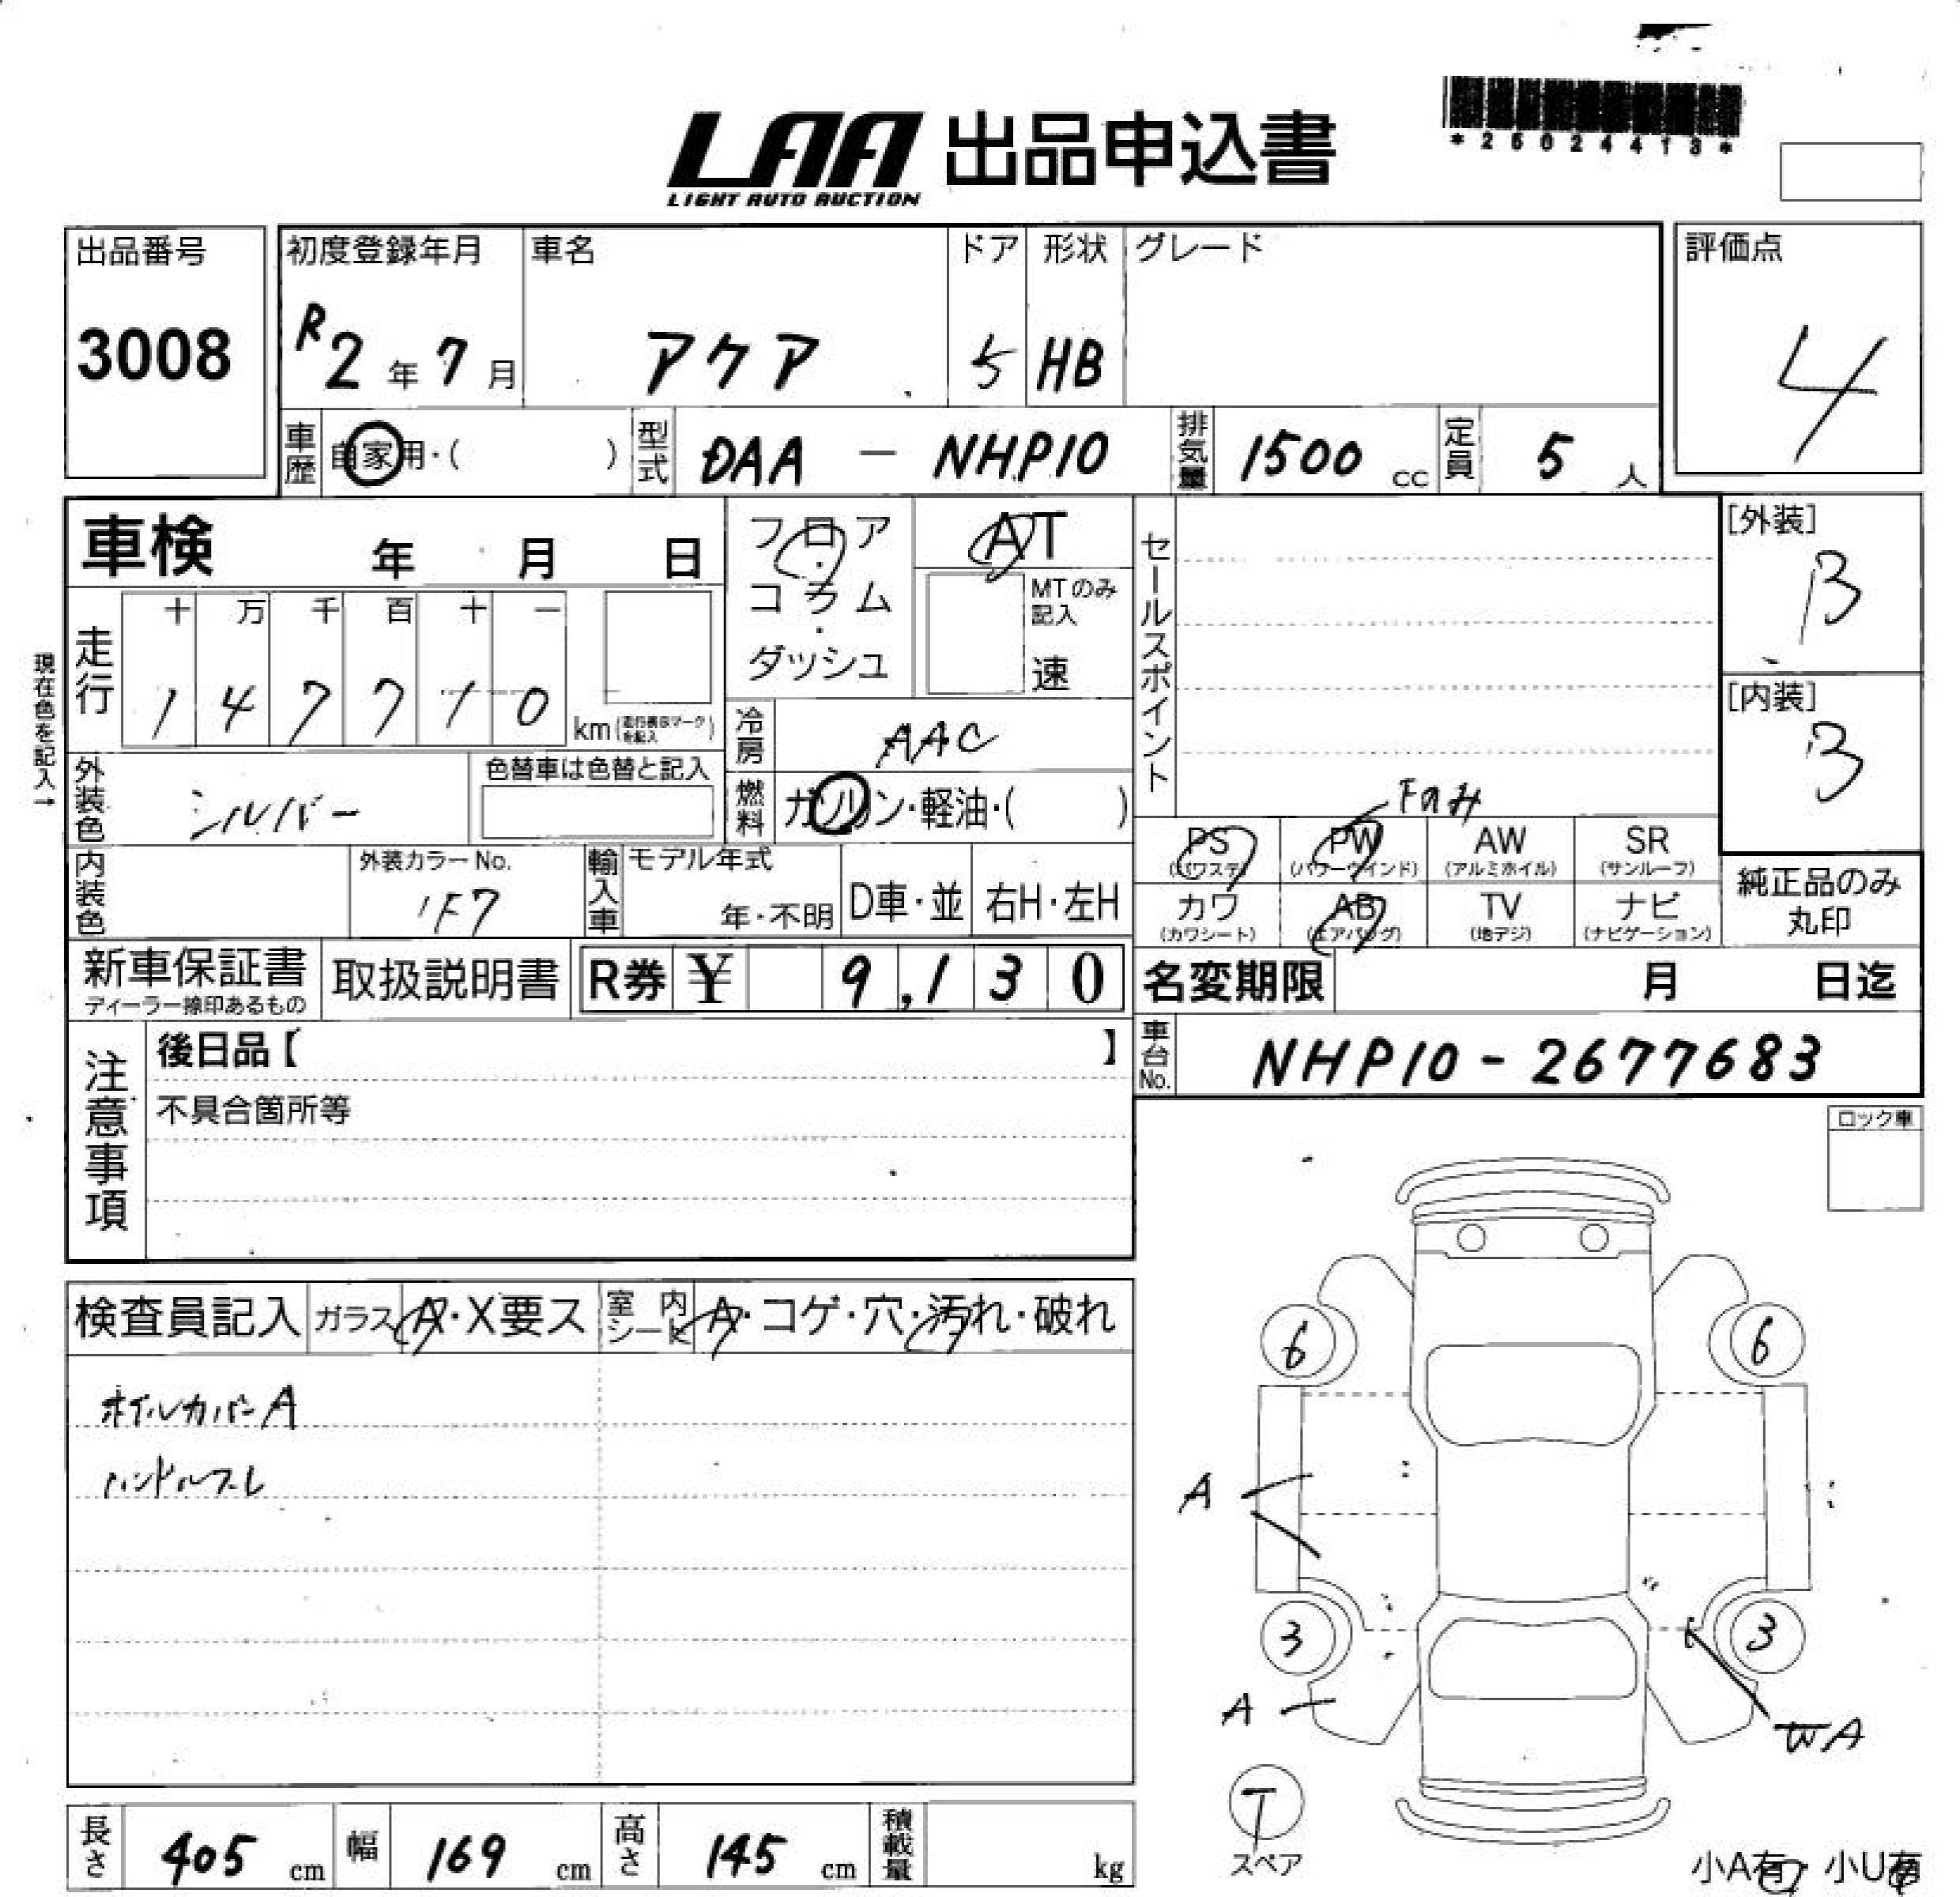 LAA 出品申込書
LIGHT AUTO AUCTION
*25024413*
出品番号
3008
初度登録年月
R2年7月
車名
アクア
ドア
5
形状
HB
グレード
評価点
4
車歴
自家用・( )
型式
DAA - NHP10
排気量
1500 cc
定員
5 人
車検 年 月 日
フロア・コラム・ダッシュ
AT
MTのみ記入
速
セールスポイント
[外装]
B
[内装]
B
現在色を記入→
走行
十 万 千 百 十 一
1 4 7 7 1 0 km (走行機各マークを記入)
冷房
AAC
外装色
シルバー
色替車は色替と記入
燃料
ガソリン・軽油・( )
Fのみ
PS
(パワステ)
PW
(パワーウインド)
AW
(アルミホイル)
SR
(サンルーフ)
カワ
(カワシート)
AB
(エアバッグ)
TV
(地デジ)
ナビ
(ナビゲーション)
純正品のみ
丸印
内装色
外装カラーNo.
1F7
輸入車
モデル年式
年・不明
D車・並
右H・左H
新車保証書
ディーラー捺印あるもの
取扱説明書
R券 ¥ 9,130
名変期限 月 日迄
車台No.
NHP10-2677683
注意事項
後日品【 】
不具合箇所等
ロック車
検査員記入
ガラス A・X要ス
室内シート A・コゲ・穴・汚れ・破れ
ホイルカバーA
ハンドルスレ
6
6
A
3
3
A
WA
T
スペア
長さ
405 cm
幅
169 cm
高さ
145 cm
積載量
kg
小A有・小U有